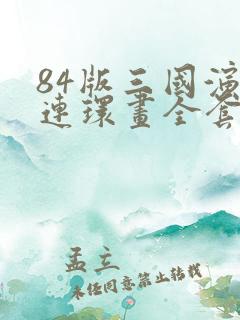 84版三國演
連環畫全套
孟立
未经同意禁止转载